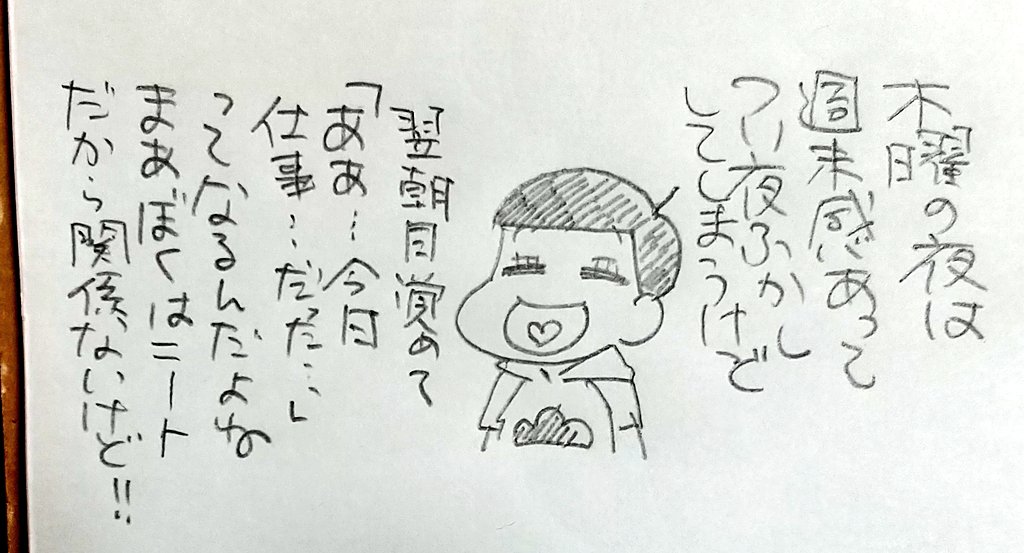 木曜の夜は
週末感あって
つい夜ふかし
してしまうけど
翌朝目覚めて
「ああ…今日
仕事…だだ…」
ってなるんだよね
まあぼくはニート
だから関係ないけど!!